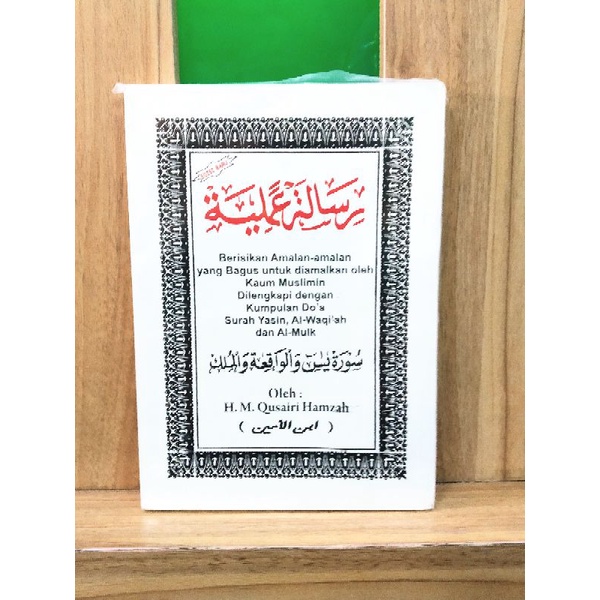 رسالة عملية
Berisikan Amalan-amalan
yang Bagus untuk diamalkan oleh
Kaum Muslimin
Dilengkapi dengan
Kumpulan Do'a
Surah Yasin, Al-Waqi'ah
dan Al-Mulk
سُورَة يٰسٓ وَالوَاقِعَة وَالمُلك
Oleh :
H. M. Qusairi Hamzah
( ابن الأمين )